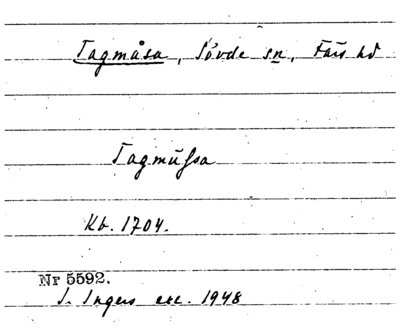 Tagmåsa, Sövde sn, Färs hd
Tagmüssa
Kb. 1704.
Nr 5592.
I. Ingers exc. 1948